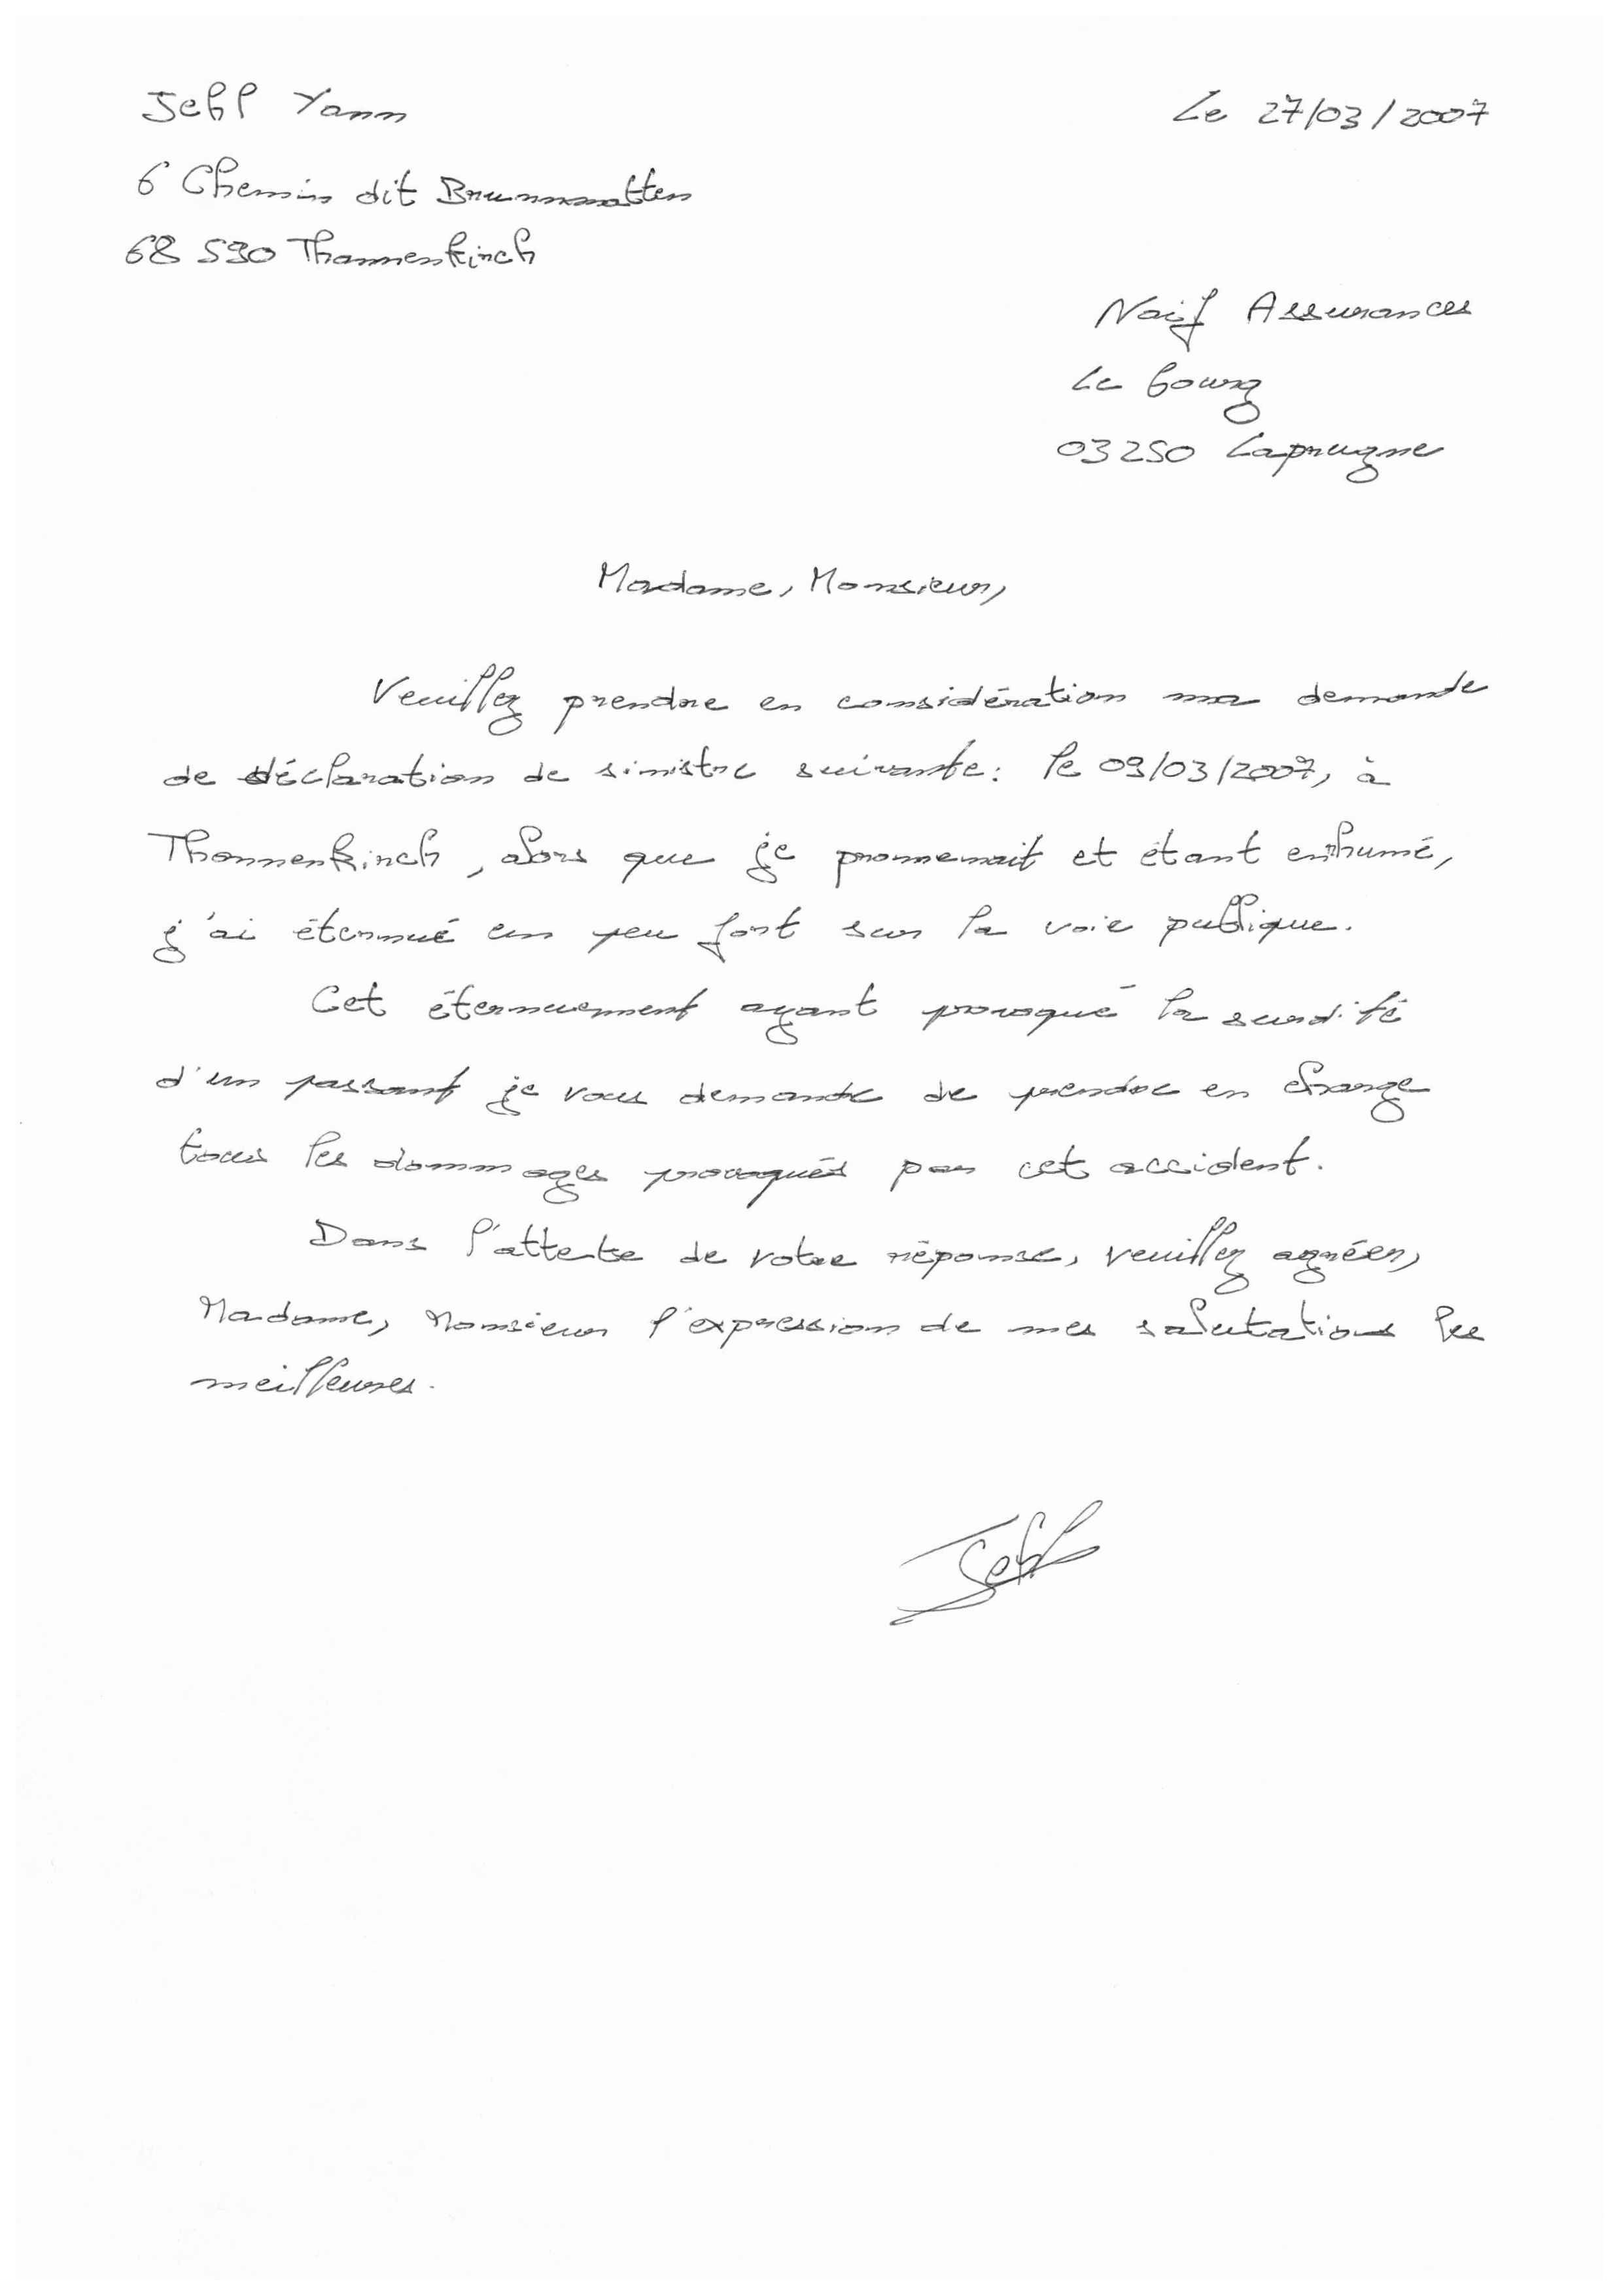 Jehl Yann
Le 27/03/2007
6 Chemin dit Brunnmatten
68 590 Thannenkirch
Naif Assurances
Le bourg
03250 Laprugne
Madame, Monsieur,
Veuillez prendre en considération ma demande
de déclaration de sinistre suivante : le 09/03/2007, à
Thannenkirch, alors que je promenait et étant enrhumé,
j'ai éternué un peu fort sur la voie publique.
Cet éternuement ayant provoqué la surdité
d'un passant je vous demande de prendre en charge
tous les dommages provoqués par cet accident.
Dans l'attente de votre réponse, veuillez agréer,
Madame, Monsieur l'expression de mes salutations les
meilleures.
Jehl